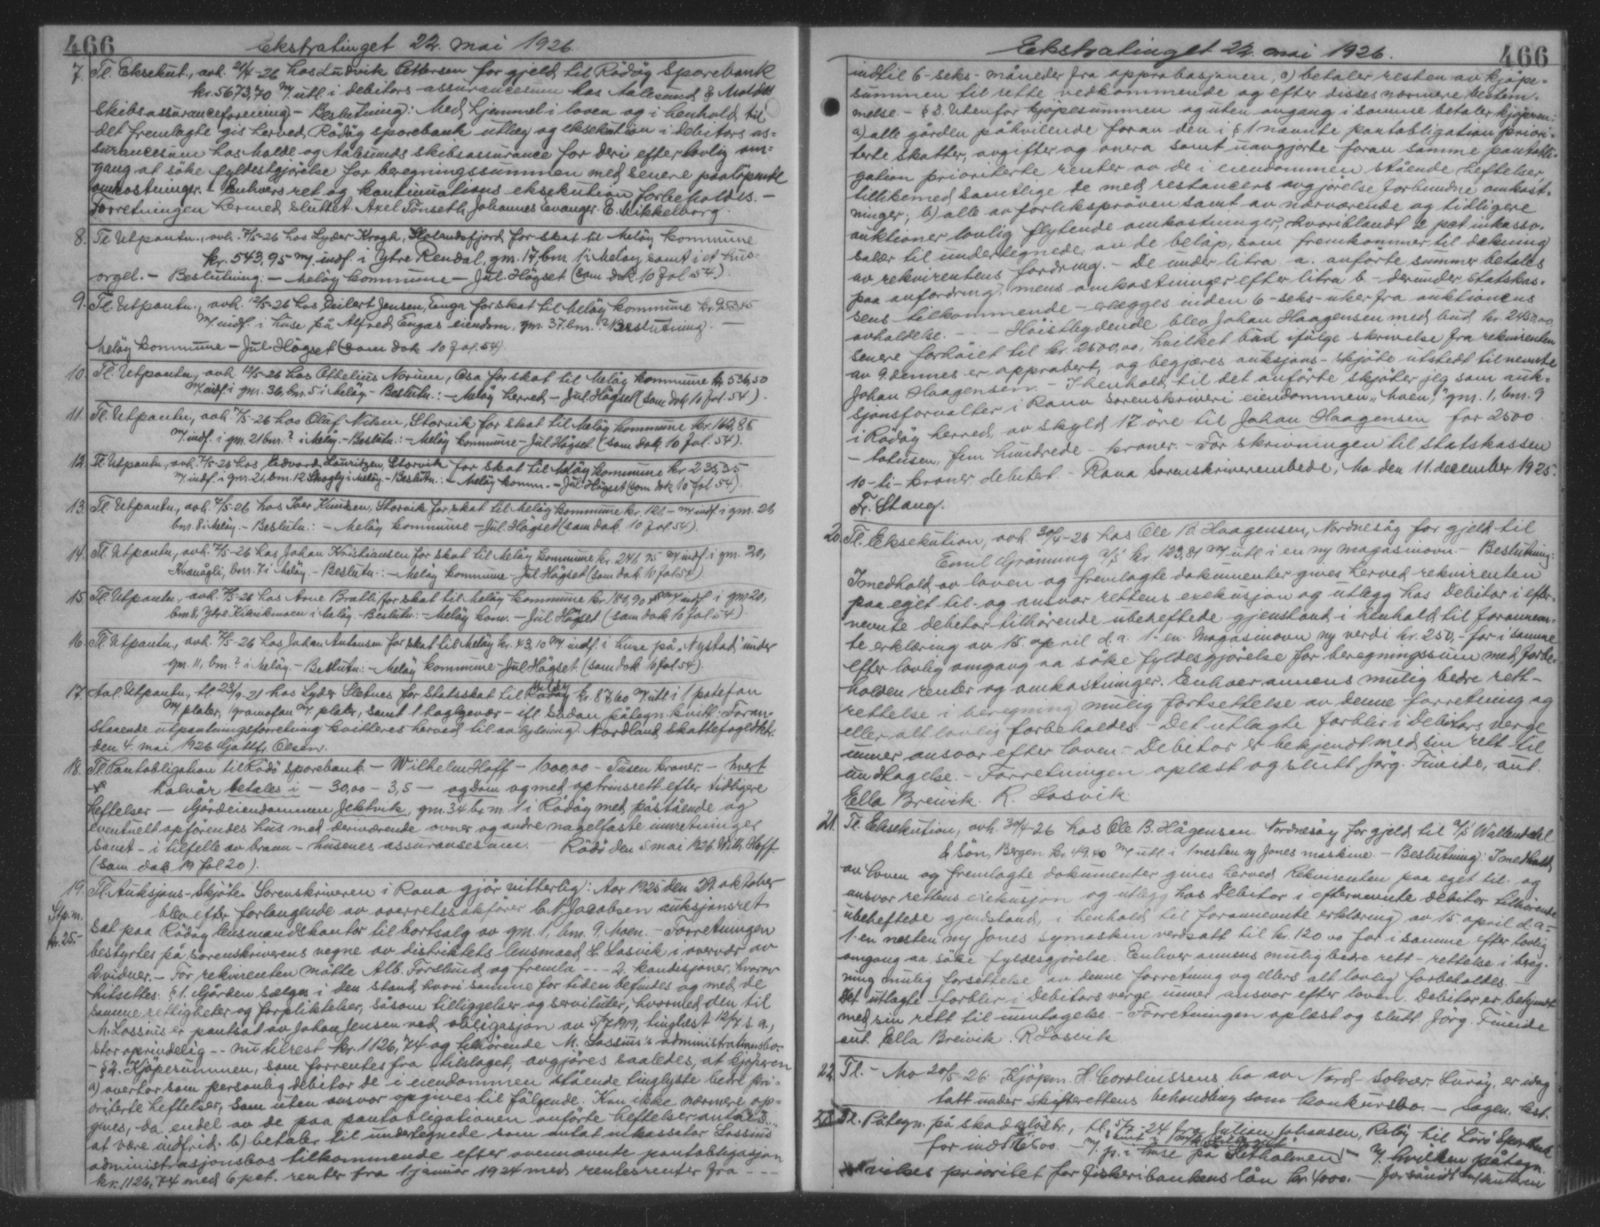 466
Ekstratinget 22. mai 1926.
7. Tl. Eksekut., avh. 21/4-26 hos Ludvik Pettersen for gjeld til Rödöy Sparebank
kr. 5673,70 m/ utl i debitors assurancesum hos Aalesund & Molde
skibsassuranceforening. - Beslutning: Med hjemmel i loven og i henhold til
det fremlagte gis herved Rödöy sparebank utlæg og eksekution i debitors as-
surancesum hos Molde og Aalesunds skibsassurance for deri efter lovlig om-
gang at söke fyldestgjörelse for beregningssummen med senere paalöpende
omkostninger. Enhvers ret og kontinuations eksekution forbeholdes. -
Forretningen hermed sluttet. Axel Tönseth, Johannes Evanger. E. Mikkelborg.
8. Tl. Utpantn., avh. 7/5-26 hos Lyder Krogh, for skat til Meløy kommune
kr. 543,95 m/ indf. i Ytre Rendal, gm. 17, bm. 1 i Meløy samt i et hus-
orgel. - Beslutning. - Meløy kommune - Jul Högset (som dok 10 fol 54).
9. Tl. Utpantn., avh. 12/5-26 hos Jensen, Enga for skat til Meløy kommune
m/ indf. i huse på Alfred Engas eiendom, gm. 37, bm. Beslutning. -
Meløy kommune - Jul Högset (som dok 10 fol. 54).
10. Tl. Utpantn, avh 12/5-26 hos Othelius Norum, Osa for skat til Meløy kommune kr. 536,50
m/ indf. i gm. 36, bm. 5 i Meløy - Beslutn: - Meløy herred - Jul Högset (som dok 10 fol. 54).
11. Tl. Utpantn, avh. 7/5-26 hos Olaf Nilsen, Storvik for skat til Meløy kommune kr. 162,85
m/ indf. i gm. 21 bm. ? i Meløy. - Beslutn: - Meløy kommune - Jul Högset (som dok 10 fol. 54).
12. Tl. Utpantn, avh. 7/5-26 hos Edvard Lauritzen, Storvik for skat til Meløy kommune kr 235,35
m/ indf. i gm. 21, bm. 12 i Meløy - Beslutn: - Meløy komm. - Jul Högset (som dok 10 fol 54).
13. Tl. Utpantn, avh. 7/5-26 hos Iver Knutsen, Storvik for skat til Meløy kommune kr. m/ indf i gm. 26
bm. 8 i Meløy. - Beslutn: - Meløy kommune - Jul Högset (som dok 10 fol 54).
14. Tl. Utpantn, avh. 7/5-26 hos Johan Kristiansen for skat til Meløy kommune kr. 241,95 m/ indf. i gm. 20,
bm. 7 i Meløy - Beslutn: - Meløy kommune - Jul Högset (som dok 10 fol 54)
15. Tl. Utpantn, avh. 7/5-26 hos Arne Bratli for skat til Meløy kommune kr. 184,90 m/ indf. i gm 20,
bm 8, Ytre i Meløy. Beslutn: - Meløy kom. - Jul Högset (som dok 10 fol 54)
16. Tl. Utpantn, avh. 7/5-26 hos Johan Antonsen for skat til Meløy kr. 43,10 m/ indf. i huse på "Nystad" under
gm. 11, bm. ? i Meløy. - Beslutn: - Meløy kommune - Jul Högset (som dok 10 fol 54).
17. Avl. Utpantn, tl 23/9 21 hos Lyder Sletnes for Statsskat til Rödöy kr. 87,60 m/ utl i 1 patefon
m/ plater, 1 gramofon m/ plater, samt 1 haglgevær - ifl. sådan påtegn. kvitt: Foran-
staaende utpantningsforretning kvitteres herved til avlysning. Nordland skattefogedktr.
den 4. mai 1926 Olsen.
18. Tl. Pantobligation til Rödö Sparebank - Wilhelm Hoff - 1000,00 - Tusen kroner. - hvert
halvår betales i - 30,00 - 3,5 - og dom og med optrinsrett efter tidligere
heftelser - Gårdeiendommen Jektvik, gm. 34 br m. 1 i Rödöy med påstående og
eventuelt opførendes hus med derværende ovner og andre nagelfaste innretninger
samt - i tilfelle av brann - husenes assuransesum. Rödö den mai 1926 Wilh. Hoff.
(som dok 19 fol 20).
19. Tl. Auksjons-Skjöte Sorenskriveren i Rana gjör vitterlig: Aar 1925 den 29. oktober
Stpm. kr. 25.-
blev efter forlangende av overretssakfører C. N. Jacobsen auksjonsret
sat paa Rödöy lensmandskontor til bortsalg av gm. 1, bm. 9. Moen. - Forretningen
bestyrtes på sorenskriverens vegne av distriktets lensmand E. Losvik i overvær av
2 vidner. - For rekvirenten mötte Alb. Forslund og fremla - - - 2. konditsjoner, hvorav
hitsettes: § 1. Gården sælges i den stand hvori samme for tiden befindes og med de
samme rettigheter og forpliktelser, såsom tilliggelser og servituter, hvormed den til
M. Lossius er pantsat av Johan Jensen ved obligasjon av 5/7 1919, tinglæst 12/7 s. a.,
stor oprindelig - - nu tilrest kr. 1126,74 og tilhörende M. Lossius's administrationsbo.
- § 2. Kjöpesummen, som forrentes fra tilslaget, avgjöres saaledes, at kjöperen
a) overtar som personlig debitor de i eiendommen stående tinglyste bedre pri-
oriterte heftelser, som uten ansvar opgives til fölgende. Kan ikke nærmere op-
gives, da endel av de paa pantobligationen anförte heftelser antas
at være indfrid. b) betaler til undertegnede som antat inkassator Lossius
administrasjonsbos tilkommende efter ovennævnte pantobligasjon
kr. 1126,74 med 6 pct. renter fra 1 januar 1924 med rentesrenter fra - - -
Ekstratinget 22. mai 1926.
466
indtil 6 - seks - måneder fra approbasjonen, c) betaler resten av kjöpe-
summen til rette vedkommende og efter disses nærmere bestem-
melse. - § 3. Utenfor kjöpesummen og uten avgang i samme betaler kjöperen:
a) alle gården påhvilende foran den i § 1 nævnte pantobligation priori-
terte skatter, avgifter og onera samt uavgjorte foran samme pantobli-
gation prioriterte renter av de i eiendommen stående heftelser
tillikemed samtlige de med restancers avgjörelse forbundne omkost-
ninger; b) alle av forliksprøven samt av nærværende og tidligere
auktioner lovlig flytende omkostninger, hvoriblandt 2 pct inkasso-
salær til undertegnede av de beløp, som fremkommer til dækning
av rekvirentens fordring. - De under litra a. anførte summer betales
paa anfordring, mens omkostninger efter litra b - derunder statskas-
sens tilkommende - erlegges inden 6 - seks - uker fra auktionens
avholdelse. - - Höistbydende blev Johan Haagensen med bud kr. 2450,00,
senere forhöiet til kr. 2500,00, hvilket bud ifölge skrivelse fra rekvirenten
av 9 dennes er approbert, og begjæres auksjons-skjöte utstedt til nævnte
Johan Haagensen. - I henhold til det anförte skjöter jeg som auk-
sjonsforvalter i Rana sorenskriveri eiendommen "Moen," gm. 1, bm. 9
i Rödöy herred, av skyld 17 öre til Johan Haagensen for 2500
- totusen fem hundrede - kroner. - For skrivningen til statskassen
10 - ti - kroner debitert. Rana Sorenskriverembede, Mo den 11. december 1925.
Fr. Stang.
20. Tl. Eksekution, avh. 30/4-26 hos Ole B. Haagensen, Nordnesöy for gjeld til
Emil Grönning A/S kr. 123,81 m/ utl i en ny magasinovn - Beslutning:
I medhold av loven og fremlagte dokumenter gives herved rekvirenten
paa eget til- og ansvar rettens exekusjon og utlegg hos Debitor i efter-
nevnte debitor tilhörende ubeheftede gjenstand i henhold til forannevn-
te erklæring av 15 april d. a. 1 en Magasinovn ny verdi kr. 250,- for i samme
efter lovlig omgang aa söke fyldesgjörelse for beregningssum med forbe-
holden renter og omkostninger. Enhver annens mulig bedre rett -
rettelse i beregning mulig fortsettelse av denne forretning og
eller alt lovlig forbeholdes - Det utlagte forblir i Debitors verge
under ansvar efter loven. - Debitor er bekjendt med sin rett til
undtagelse. - Forretningen oplæst og slutt Jörg. Fineide, aut.
Ella Breivik. R. Losvik
21. Tl. Eksekution, avh. 30/4-26 hos Ole B. Hågensen Nordnesöy for gjeld til A/S Wallendahl
& Sön, Bergen kr. 49.40 m/ utl i 1 nesten ny Jones maskine - Beslutning: I medhold
av loven og fremlagte dokumenter gives herved Rekvirenten paa eget til- og
ansvar rettens exekusjon og utlegg hos Debitor i efternevnte debitor tilhörende
ubeheftede gjenstand i henhold til forannevnte erklæring av 15 april d. a. -
1. en nesten ny Jones symaskin verdsatt til kr. 120 00 for i samme efter lovlig
omgang aa söke fyldesgjörelse. Enhver annens mulig bedre rett - rettelse i bereg-
ning mulig forsettelse av denne forretning og ellers alt lovlig forbeholdes. -
Det utlagte forblir i Debitors verge under ansvar efter loven. Debitor er bekjendt
med sin rett til inntagelse. - Forretningen oplæst og slutt Jörg. Fineide
aut. Ella Breivik. R Losvik
22. Tl. - Mo 20/5-26 Kjöpm. H. Corneliussens bo av Nord-Solvær Luröy, er idag
tatt under skifterettens behandling som konkursbo. -
23. Tl. Påtegn. på skadeslösbr., tl. 5/2-24 fra Julian Johansen, til Sparebank
for indtil 1500. i huse på Setholmen - v/ hvilken påtegn.
prioritet for fiskeribankens lån kr. 1000.